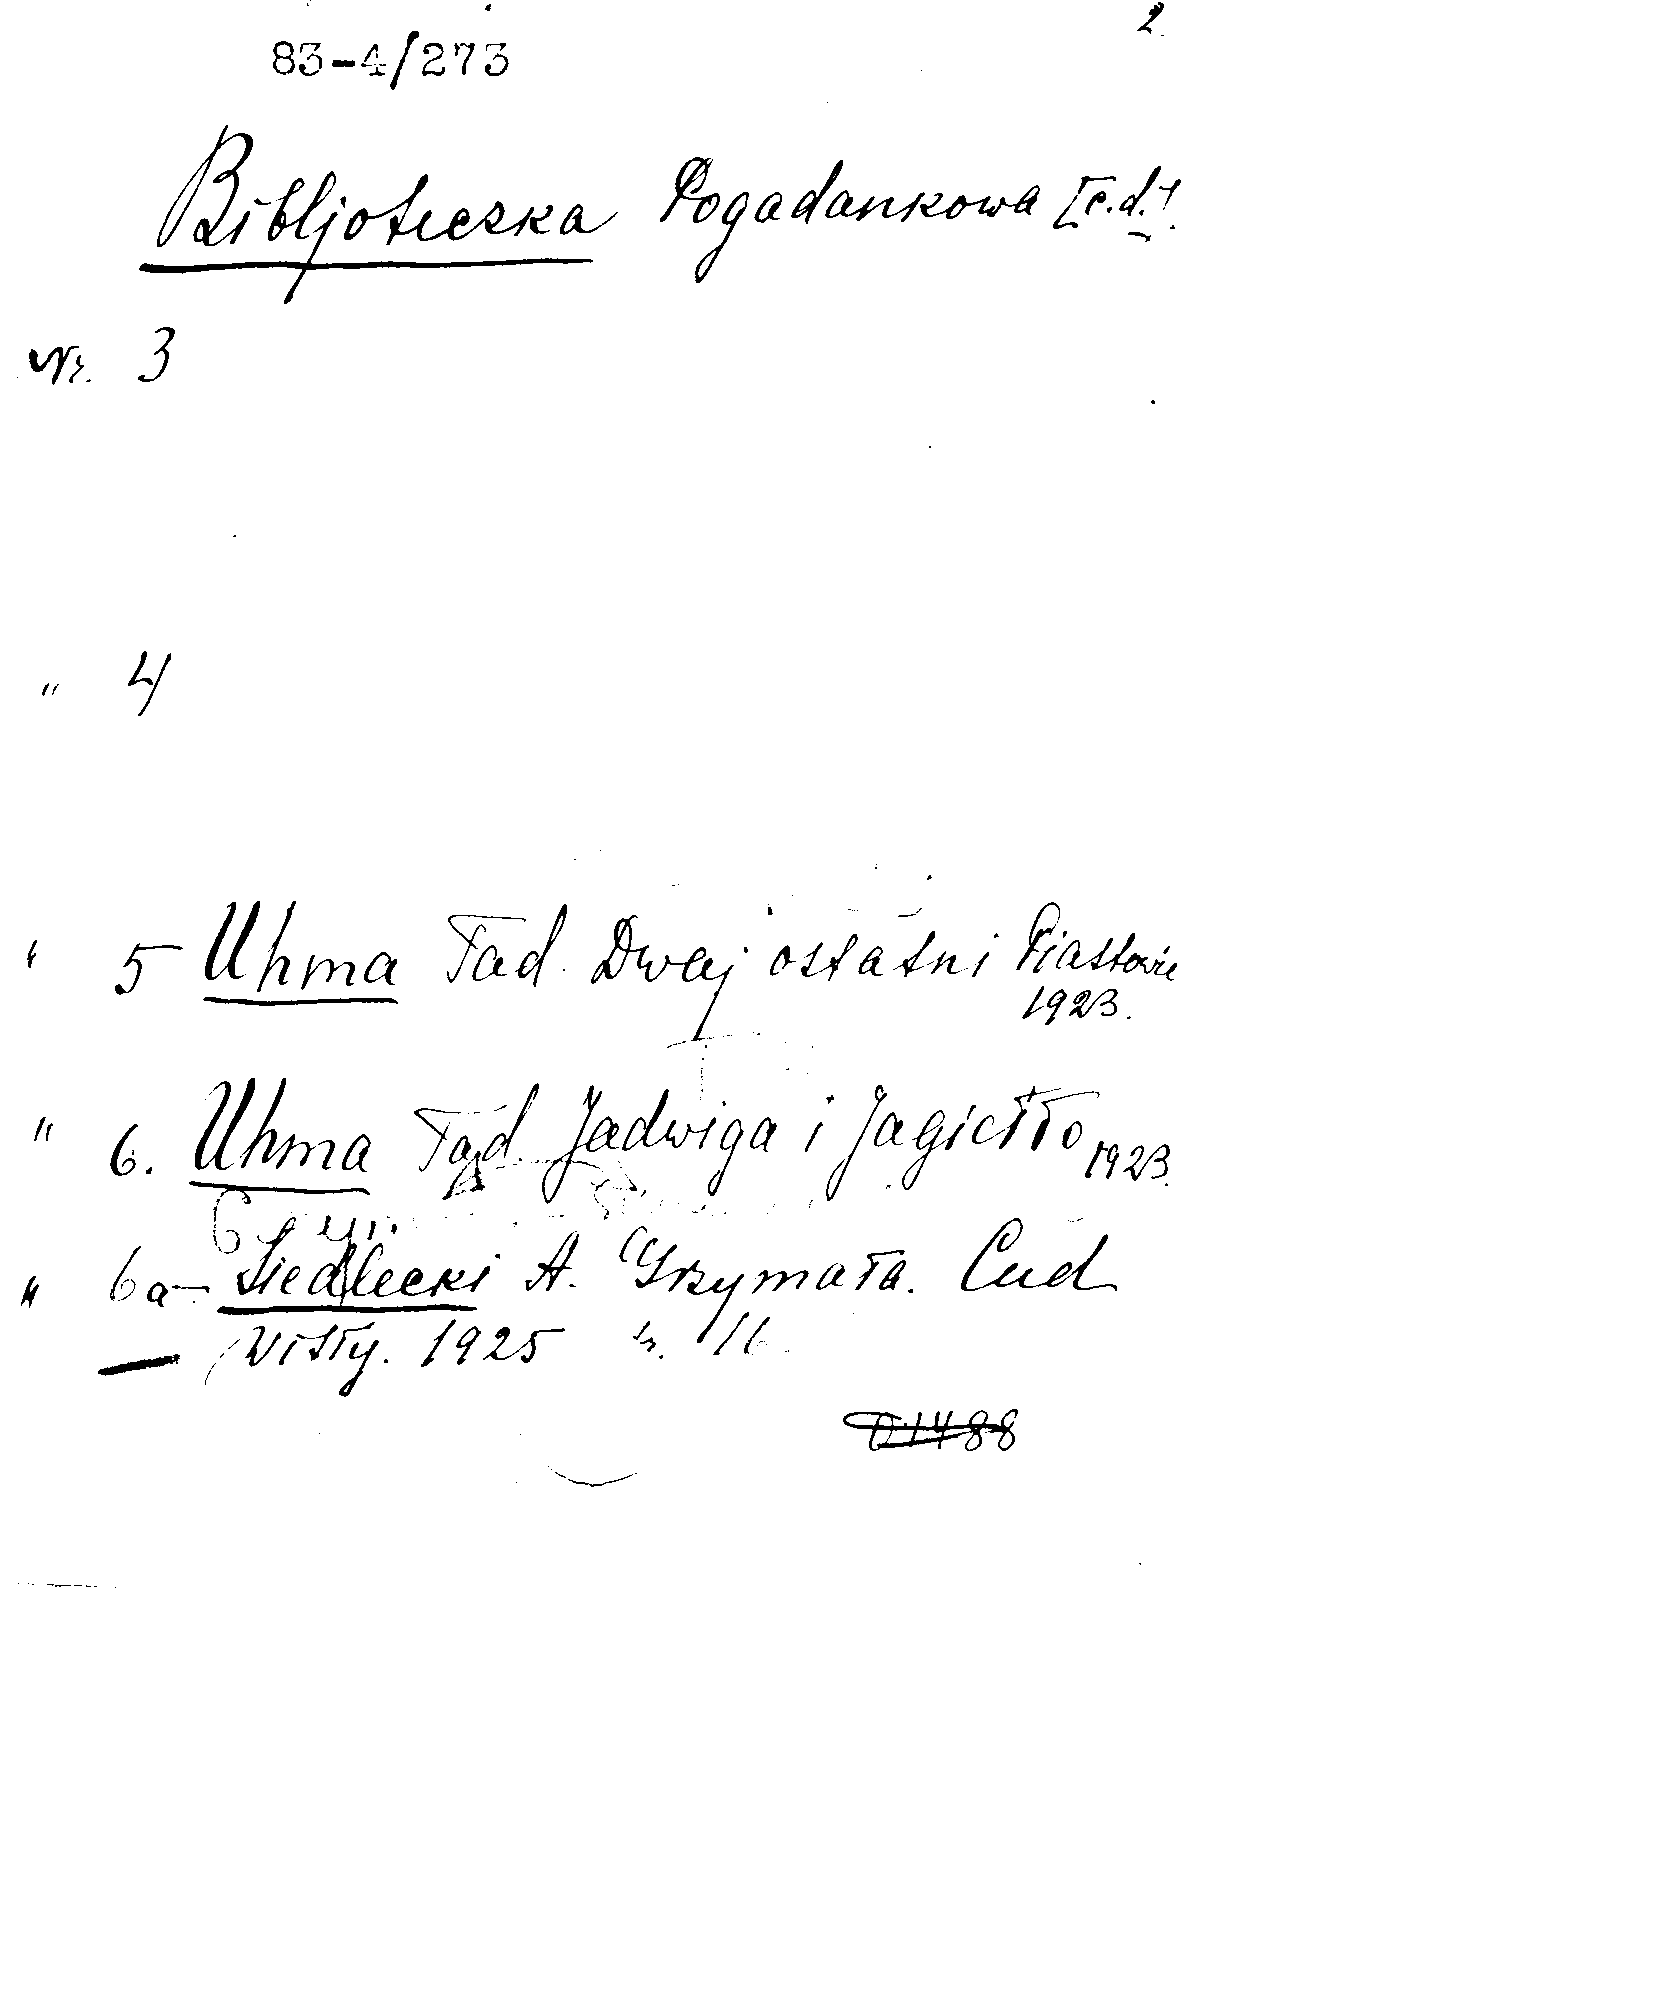 2.
83-4/273
Bibljoteczka Pogadankowa [c.d.]
Nr. 3
" 4
" 5 Uhma Tad. Dwaj ostatni Piastowie
1923.
" 6. Uhma Tad. Jadwiga i Jagiełło 1923.
" 6a Siedlecki A. Grzymała. Cud
Wisły. 1925 16.
01488